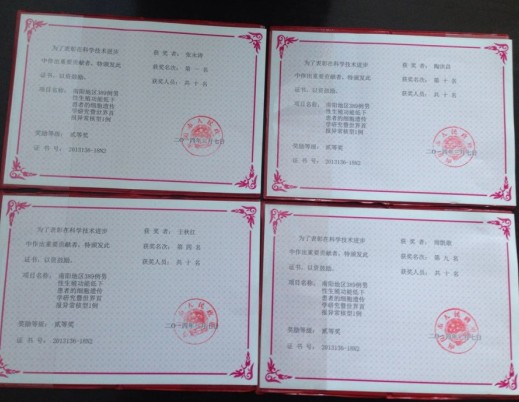 为了表彰在科学技术进步
中作出重要贡献者，特颁发此
证书，以资鼓励。
项目名称：南阳地区389例男
性生殖功能低下
患者的细胞遗传
学研究暨世界首
报异常核型1例
奖励等级：贰等奖
证 书 号：2013136-10R2
获 奖 者：张永涛
获奖名次：第 一 名
获奖人员：共 十 名
为了表彰在科学技术进步
中作出重要贡献者，特颁发此
证书，以资鼓励。
项目名称：南阳地区389例男
性生殖功能低下
患者的细胞遗传
学研究暨世界首
报异常核型1例
奖励等级：贰等奖
证 书 号：2013136-10R2
获 奖 者：
获奖名次：第 十 名
获奖人员：共 十 名
为了表彰在科学技术进步
中作出重要贡献者，特颁发此
证书，以资鼓励。
项目名称：南阳地区389例男
性生殖功能低下
患者的细胞遗传
学研究暨世界首
报异常核型1例
奖励等级：贰等奖
证 书 号：2013136-10R2
获 奖 者：王秋红
获奖名次：第 四 名
获奖人员：共 十 名
为了表彰在科学技术进步
中作出重要贡献者，特颁发此
证书，以资鼓励。
项目名称：南阳地区389例男
性生殖功能低下
患者的细胞遗传
学研究暨世界首
报异常核型1例
奖励等级：贰等奖
证 书 号：2013136-10R2
获 奖 者：
获奖名次：第 九 名
获奖人员：共 十 名